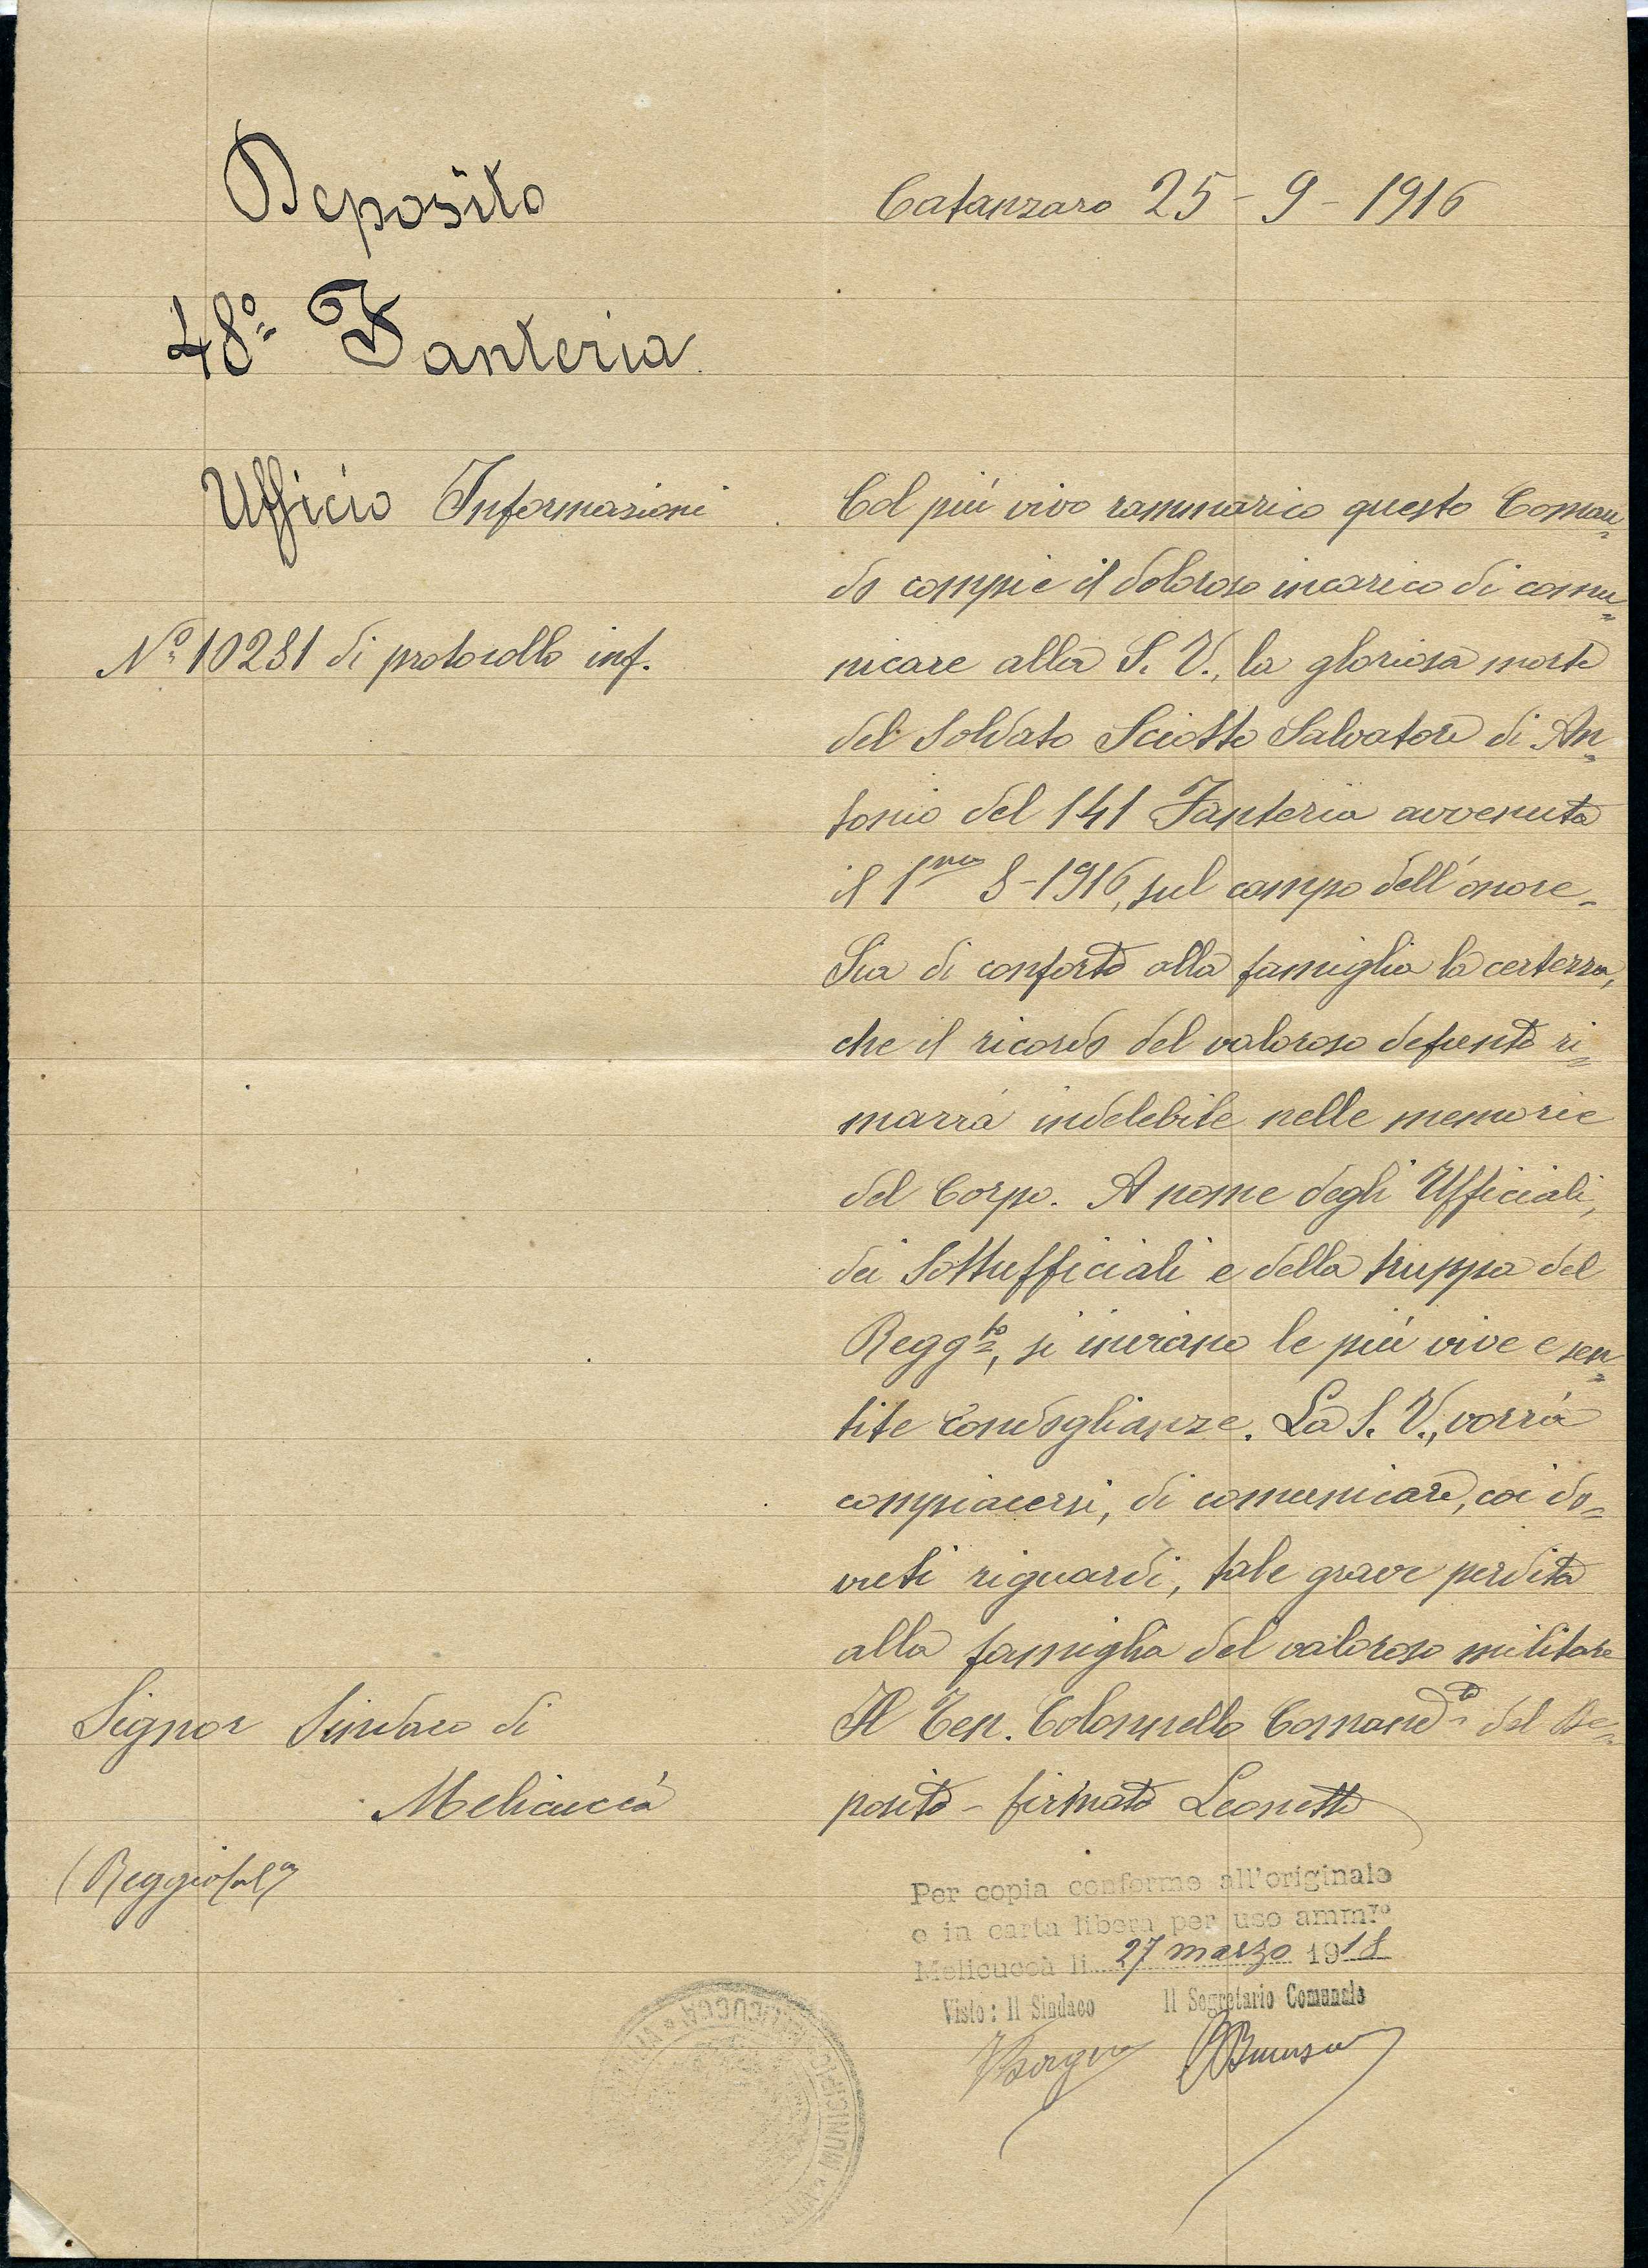 Deposito
48º Fanteria
Ufficio Informazioni
Nº 10281 di protocollo inf.
Signor Sindaco di
Melicuccà
(Reggio Cal.ª)
Catanzaro 25-9-1916
Col più vivo rammarico questo Coman=
do compie il doloroso incarico di comu=
nicare alla S. V., la gloriosa morte
del soldato Sciotto Salvatore di An=
tonio del 141 Fanteria avvenuta
il 1mo 8-1916, sul campo dell'onore.
Sia di conforto alla famiglia la certezza,
che il ricordo del valoroso defunto ri=
marrà indelebile nelle memorie
del Corpo. A nome degli Ufficiali,
dei Sottufficiali e della truppa del
Reggto, si inviano le più vive e sen=
tite Condoglianze. La S. V., vorrà
compiacersi, di comunicare, coi do=
vuti riguardi, tale grave perdita
alla famiglia del valoroso militare
Il Ten. Colonnello Comandte del De=
posito - firmato Leonetti
Per copia conforme all'originale
e in carta libera per uso ammvo
Melicuccà li 27 marzo 1918
Visto: Il Sindaco Il Segretario Comunale
MUNICIPIO MELICUCCÀ